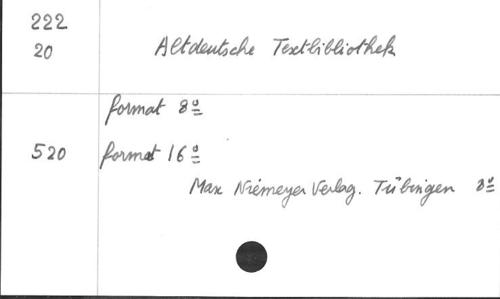 222
20 Altdeutsche Textbibliothek
format 8º
520 format 16º
Max Niemeyer Verlag. Tübingen 8º